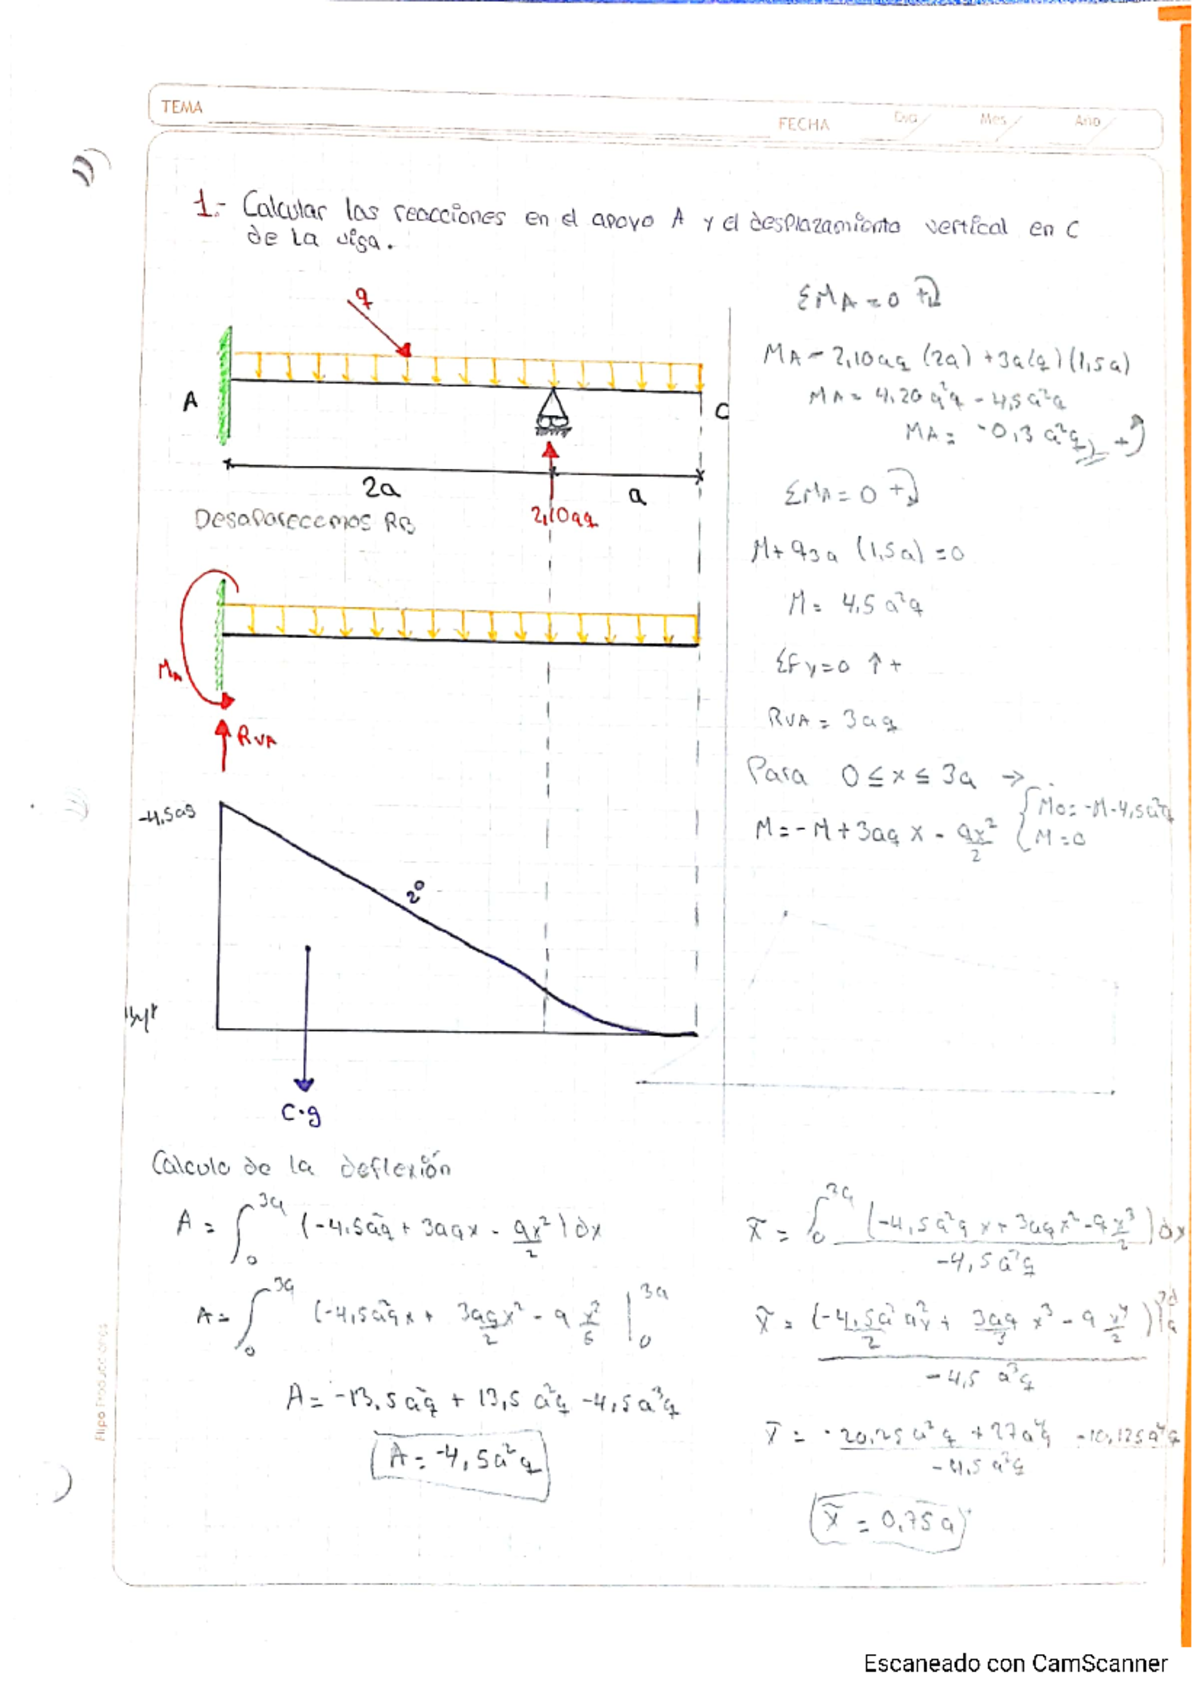 TEMA
FECHA Día Mes Año
1.- Calcular las reacciones en el apoyo A y el desplazamiento vertical en C
de la viga.
q
A
C
2a
a
2,10aq
Desaparecemos RB
MA
RVA
-4,5aq
2°
C.g
ΣMA = 0 +
MA - 2,10aq (2a) + 3a(q)(1,5a)
MA = 4,20 a²q - 4,5a²q
MA = -0,3 a²q +
ΣMA = 0 +
M + q3a (1,5a) = 0
M = 4,5 a²q
ΣFy = 0 ↑ +
RVA = 3aq
Para 0 ≤ x ≤ 3a →
M = -M + 3aq x - qx²/2 { Mo = -M-4,5a²q
M = 0
Calculo de la deflexión
A = ∫₀³ᵃ (-4,5a²q + 3aqx - qx²/2) dx
A = ∫₀³ᵃ (-4,5a²qx + 3aqx²/2 - q x²/6 |₀³ᵃ
A = -13,5a²q + 13,5 a²q - 4,5a³q
A = -4,5a²q
x̃ = ∫₀³ᵃ (-4,5a²q x + 3aq x² - q x³/2) dx
-4,5a²q
x̃ = (-4,5a² qx²/2 + 3aq/3 x³ - q x⁴/2)
-4,5 a³q
x̃ = -20,25a²q + 27a⁴q - 10,125a⁴q
-4,5a²q
x̃ = 0,75a
Flipo Producciones
Escaneado con CamScanner